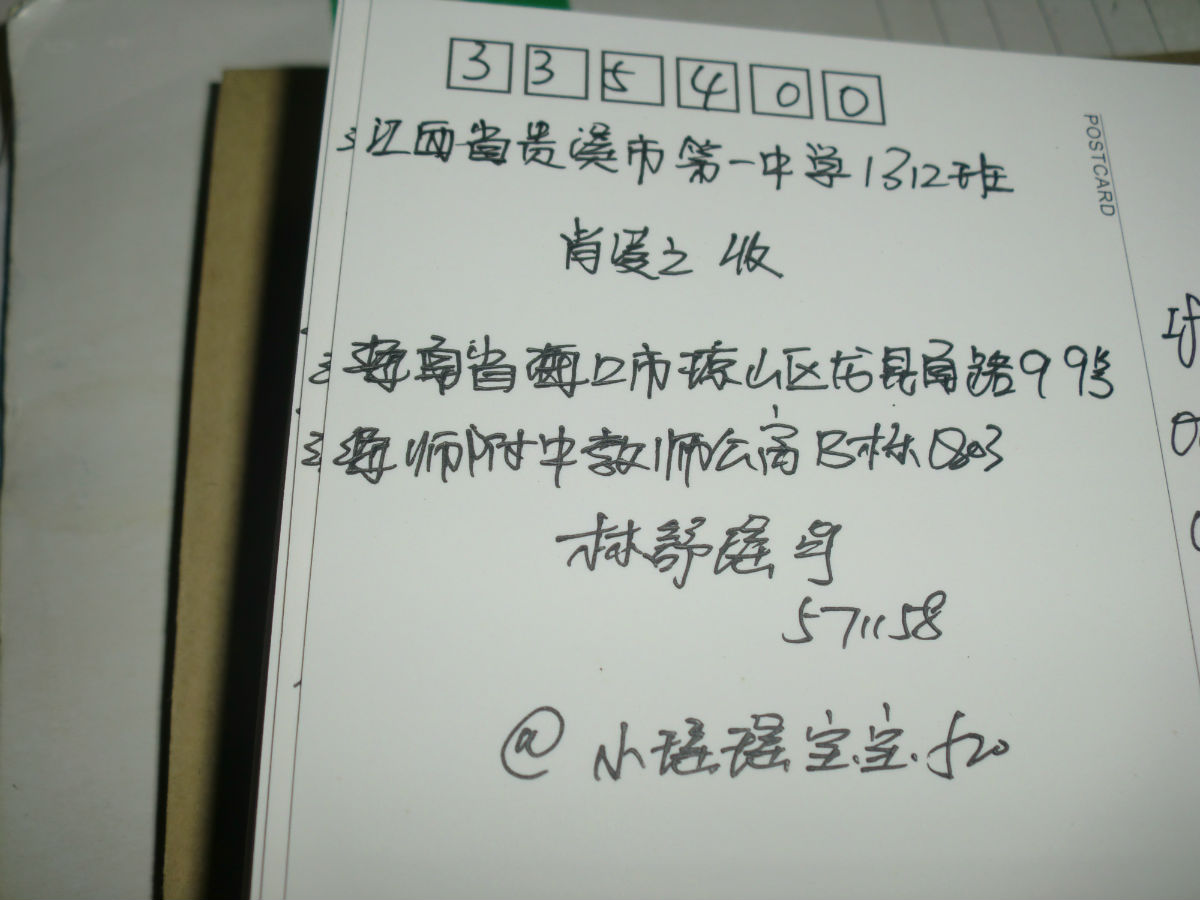 335400
江西省贵溪市第一中学1312班
肖爱之 收
海南省海口市琼山区龙昆南路99号
海师附中教师公寓B栋1803
林舒瑶 寄
571158
@小瑶瑶宝宝.f20
POSTCARD
If